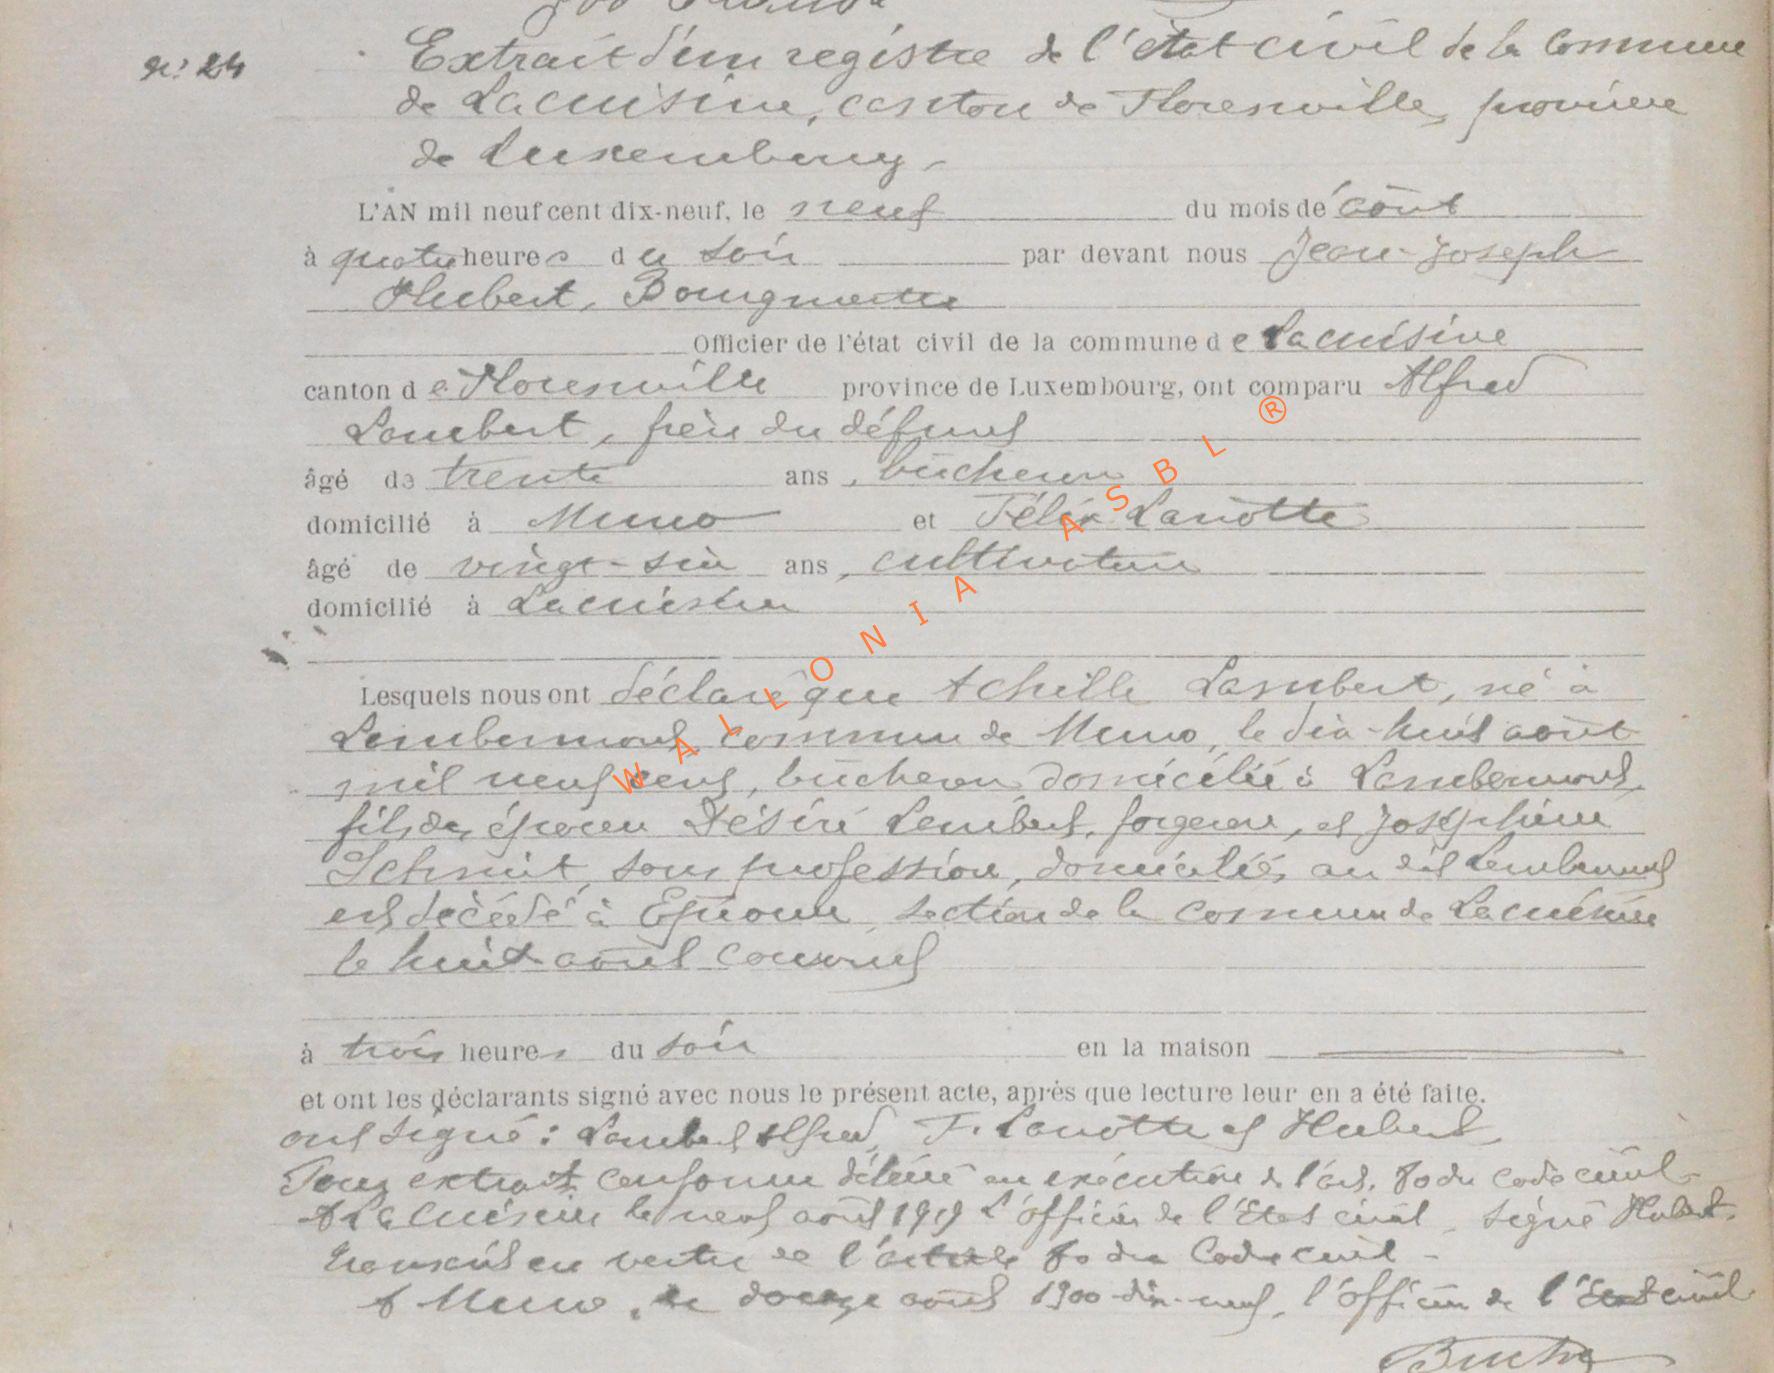 n° 24
Extrait d'un registre de l'état civil de la commune
de Lacuisine, canton de Florenville, province
de Luxembourg.
L'AN mil neuf cent dix-neuf, le neuf du mois de août
à quatre heures du soir par devant nous Jean-Joseph
Hubert, Bourgmestre
Officier de l'état civil de la commune de Lacuisine
canton de Florenville province de Luxembourg, ont comparu Alfred
Lambert, frère du défunt
âgé de trente ans, bûcheron
domicilié à Muno et Félix Lanotte
âgé de vingt-six ans, cultivateur
domicilié à Lacuisine
Lesquels nous ont déclaré que Achille Lambert, né à
Lambermont commune de Muno, le dix-huit août
mil neuf cent, bûcheron domicilié à Lambermont,
fils des époux Désiré Lambert, forgeron, et Joséphine
Schmit, sans profession, domiciliés au dit Lambermont
est décédé à Epioux, section de la commune de Lacuisine
le huit août courant
à trois heures du soir en la maison
et ont les déclarants signé avec nous le présent acte, après que lecture leur en a été faite.
ont signé : Lambert Alfred, F. Lanotte et Hubert.
Pour extrait conforme délivré en exécution de l'art. 80 du code civil
A Lacuisine le neuf août 1919 L'officier de l'Etat civil signé Hubert.
Transcrit en vertu de l'article 80 du Code civil -
A Muno, le douze août 1900-dix-neuf, l'officier de l'Etat civil
WALLONIA ASBL ®